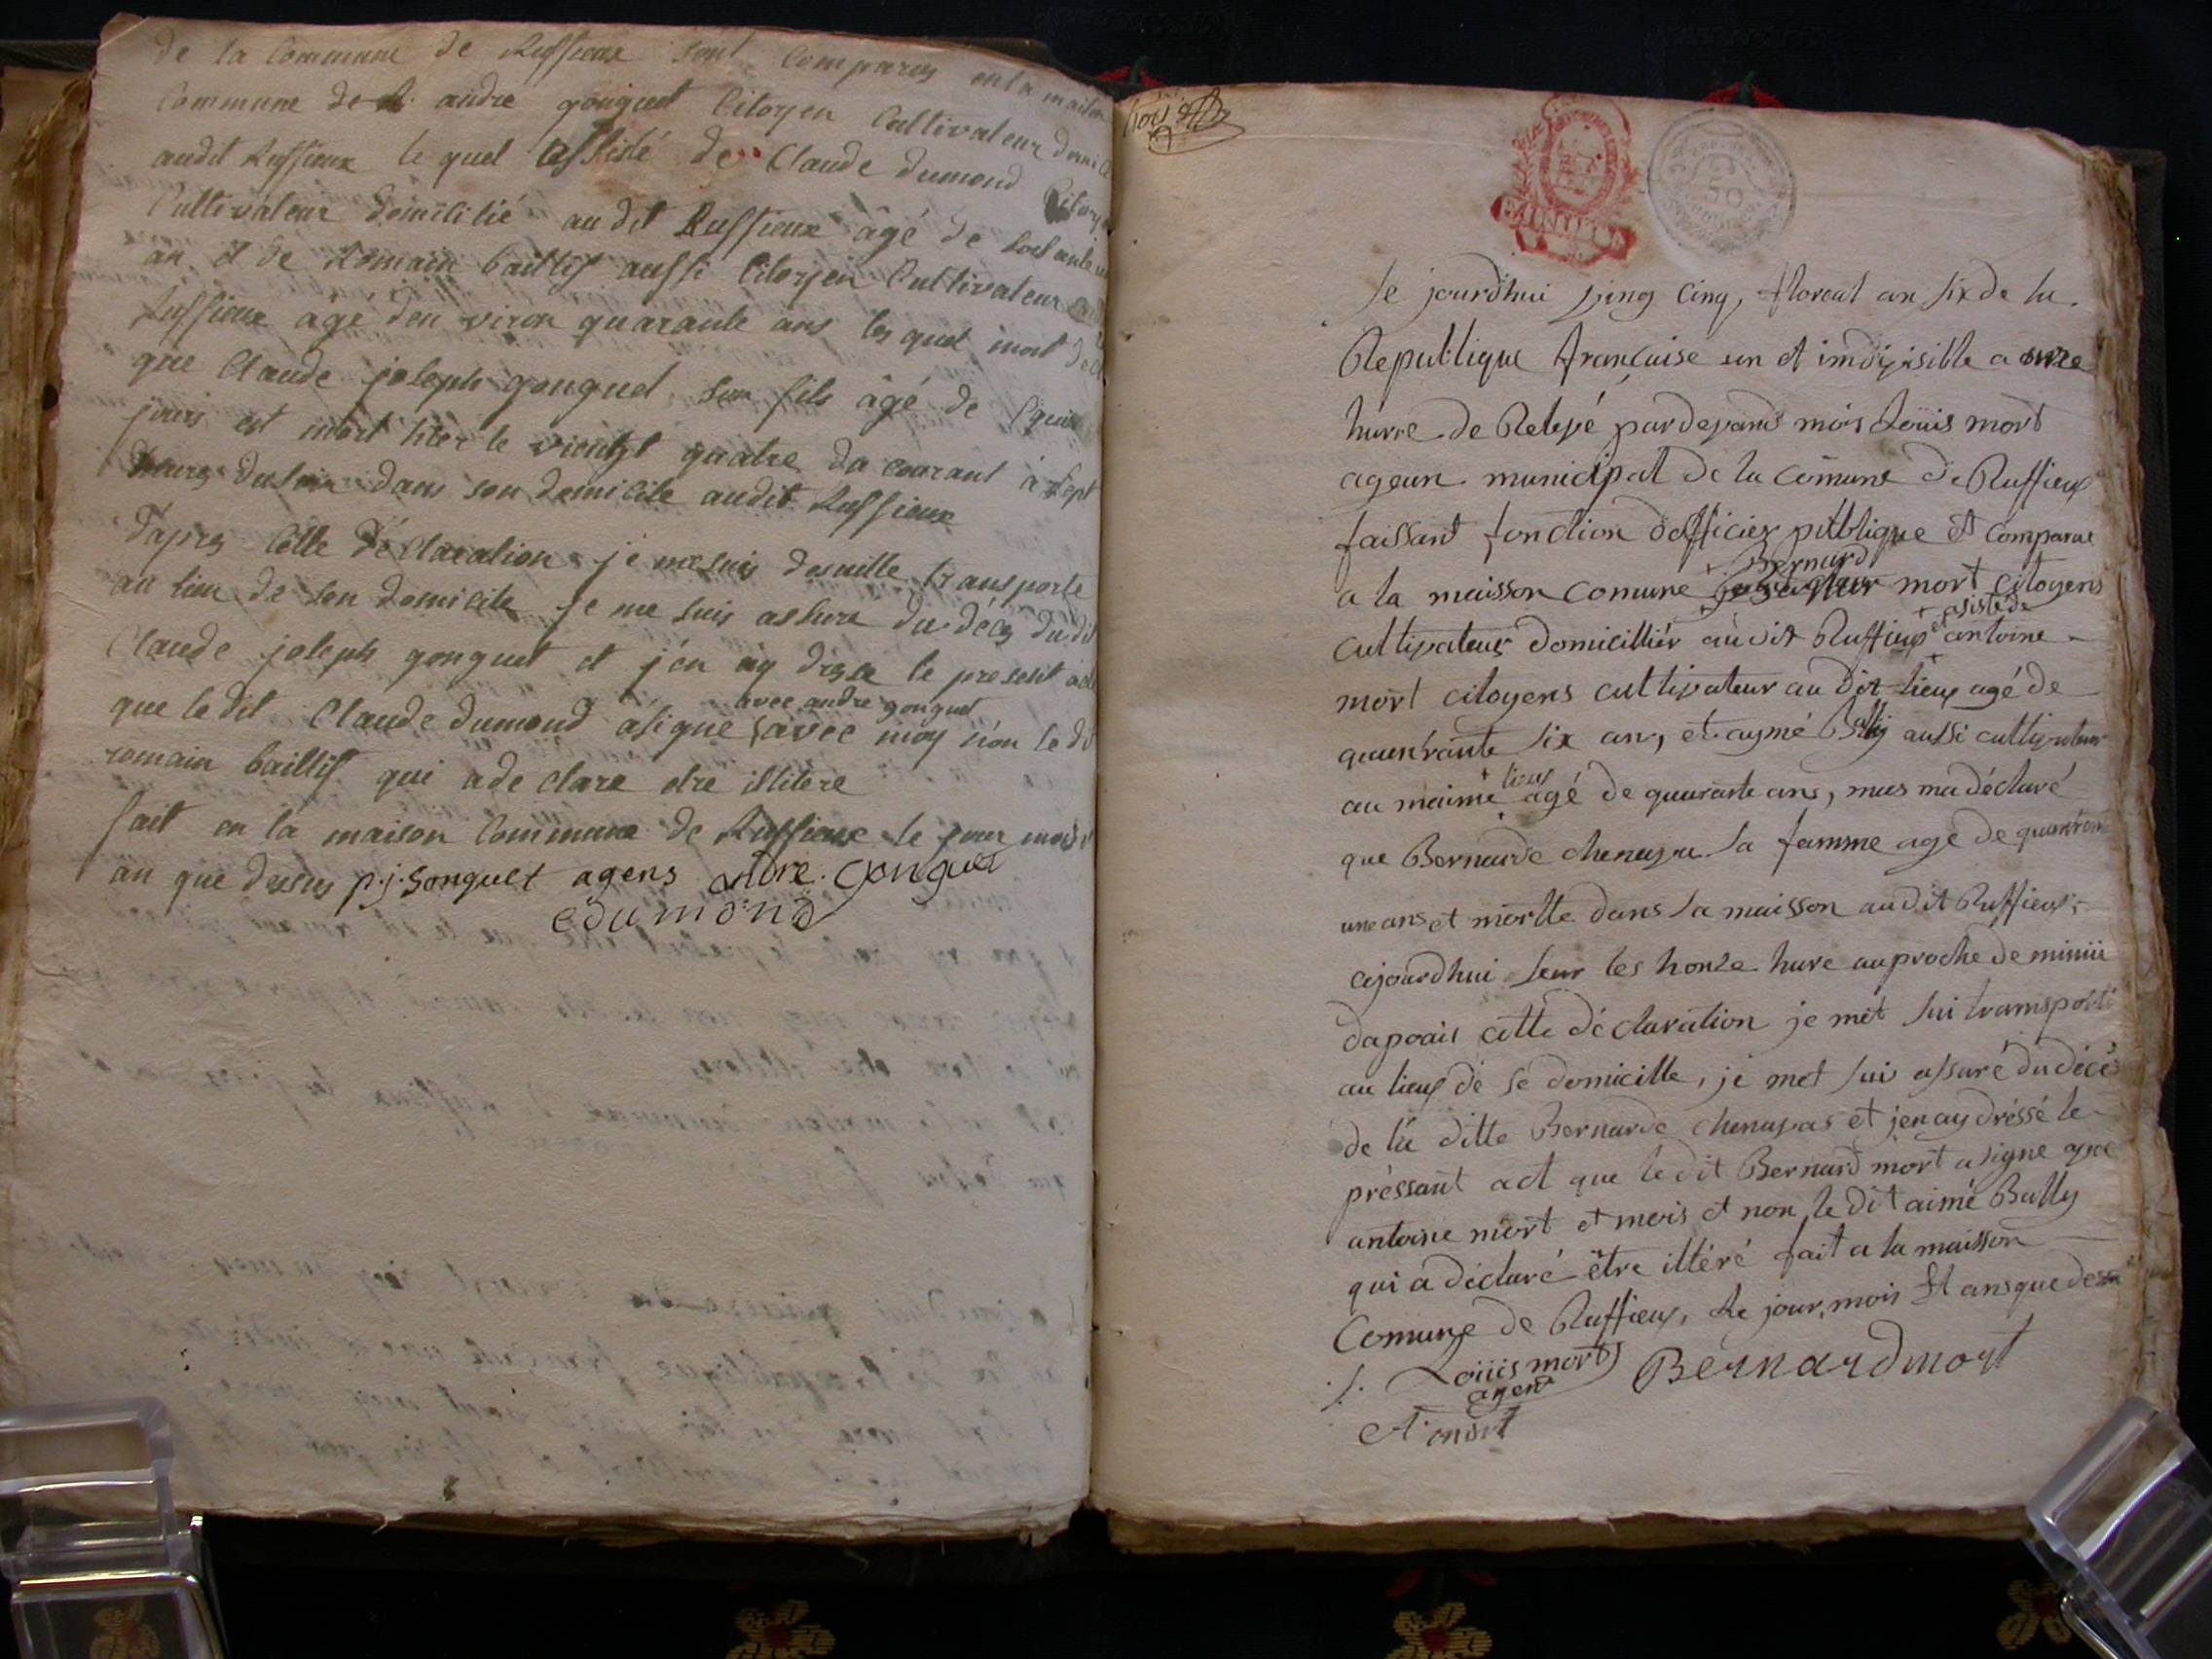 de la Commune de Ruffieux sont Comparus en la maison
Commune de R. andre gonguet Citoyen Cultivateur domicil
audit Ruffieux le quel assisté de Claude dumond Citoye
Cultivateur domicilié audit Ruffieux âgé de soisante
an et de Romain baillif aussi Citoyen Cultivateur
Ruffieux âgé den viron quarante ans les quel mont
que Claude joseph gonguet son fils âgé de
jours est mort hier le vienght quatre du courant à sept
heures du soir dans son domicile audit Ruffieux
d'apres Cette déClaration je me suis desuitte transporte
au lieu de son domicile je me suis assure du déces du dit
Claude joseph gonguet et j'en ay dresse le present acte
avec andre gonguet
que le dit Claude dumond a signe avec moy non le dit
romain baillif qui a de clare etre illitere
fait en la maison Commune de Ruffieux le jour mois
an que dessus p.j. Gonguet agens andre. Gonguet
Cdumond
le jourdhui cinq, floreal an six de la
Republique francaise un et indivisible a onze
hurre de Relevé pardevand mois Loüis mort
agean municipal de la comune de Ruffieux
faissant fonction dofficier publique et Comparue
Bernard
a la maisson comune mort citoyens
et asisté de
cultivateur domicillier au dit Ruffieux antoine
mort citoyens cultivateur au dit lieux agé de
quanrante six an, et aymé Bally aussi cultivateur
lieux
au maime agé de quarante ans, mas ma déclaré
que Bernarde chenava sa famme age de
une ans et mortte dans sa maisson au dit Ruffieux
ajourdhui seur les honze hure auproche de miniu
dapoais cette déclaration je mét sui transporté
au lieux de se domicille, je met sui assuré du décés
de la ditte Bernarde chenavas et jen ay dréssé le
préssant act que le dit Bernard mort a signe avec
antoine mort et mois et non le dit aimé Bally
qui a déclaré être illéré fait a la maisson
Comune de Ruffieux, le jour, mois et ans que dessu
Loüis mort Bernardmort
agent
A mort